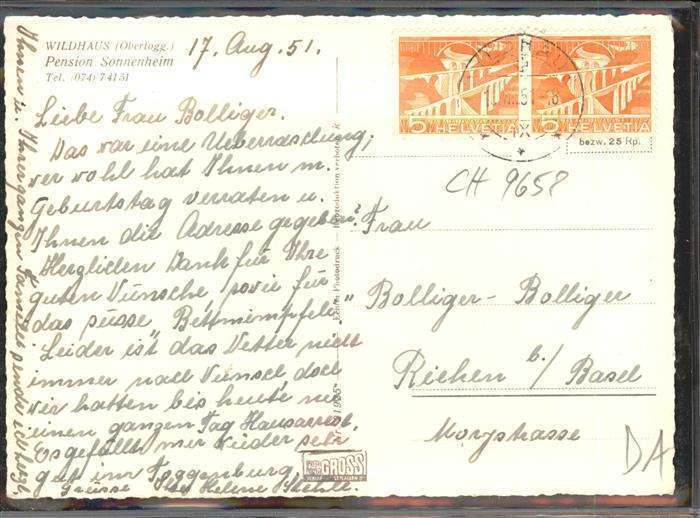 WILDHAUS (Obertogg.)
Pension Sonnenheim
Tel. (074) 74151
17. Aug. 51.
Liebe Frau Bolliger.
Das war eine Ueberraschung,
wer wohl hat Ihnen m.
Geburtstag verraten u.
Ihnen die Adresse gegeben?
Herzlichen Dank für Ihre
guten Wünsche sowie für
das süsse „Bettmümpfeli“
Leider ist das Wetter nicht
immer nach Wunsch doch
wir hatten bis heute nie
einen ganzen Tag Hausarrest.
Es gefällt mir wieder sehr
gut im Toggenburg,
Grüsse Helene
Ihnen u. Ihrer ganzen Familie sende ich herzl.
5 HELVETIA
5 HELVETIA
bezw. 25 Rp.
CH 9658
Frau
Bolliger-Bolliger
Riehen b/ Basel
Morystrasse
DA
GROSS